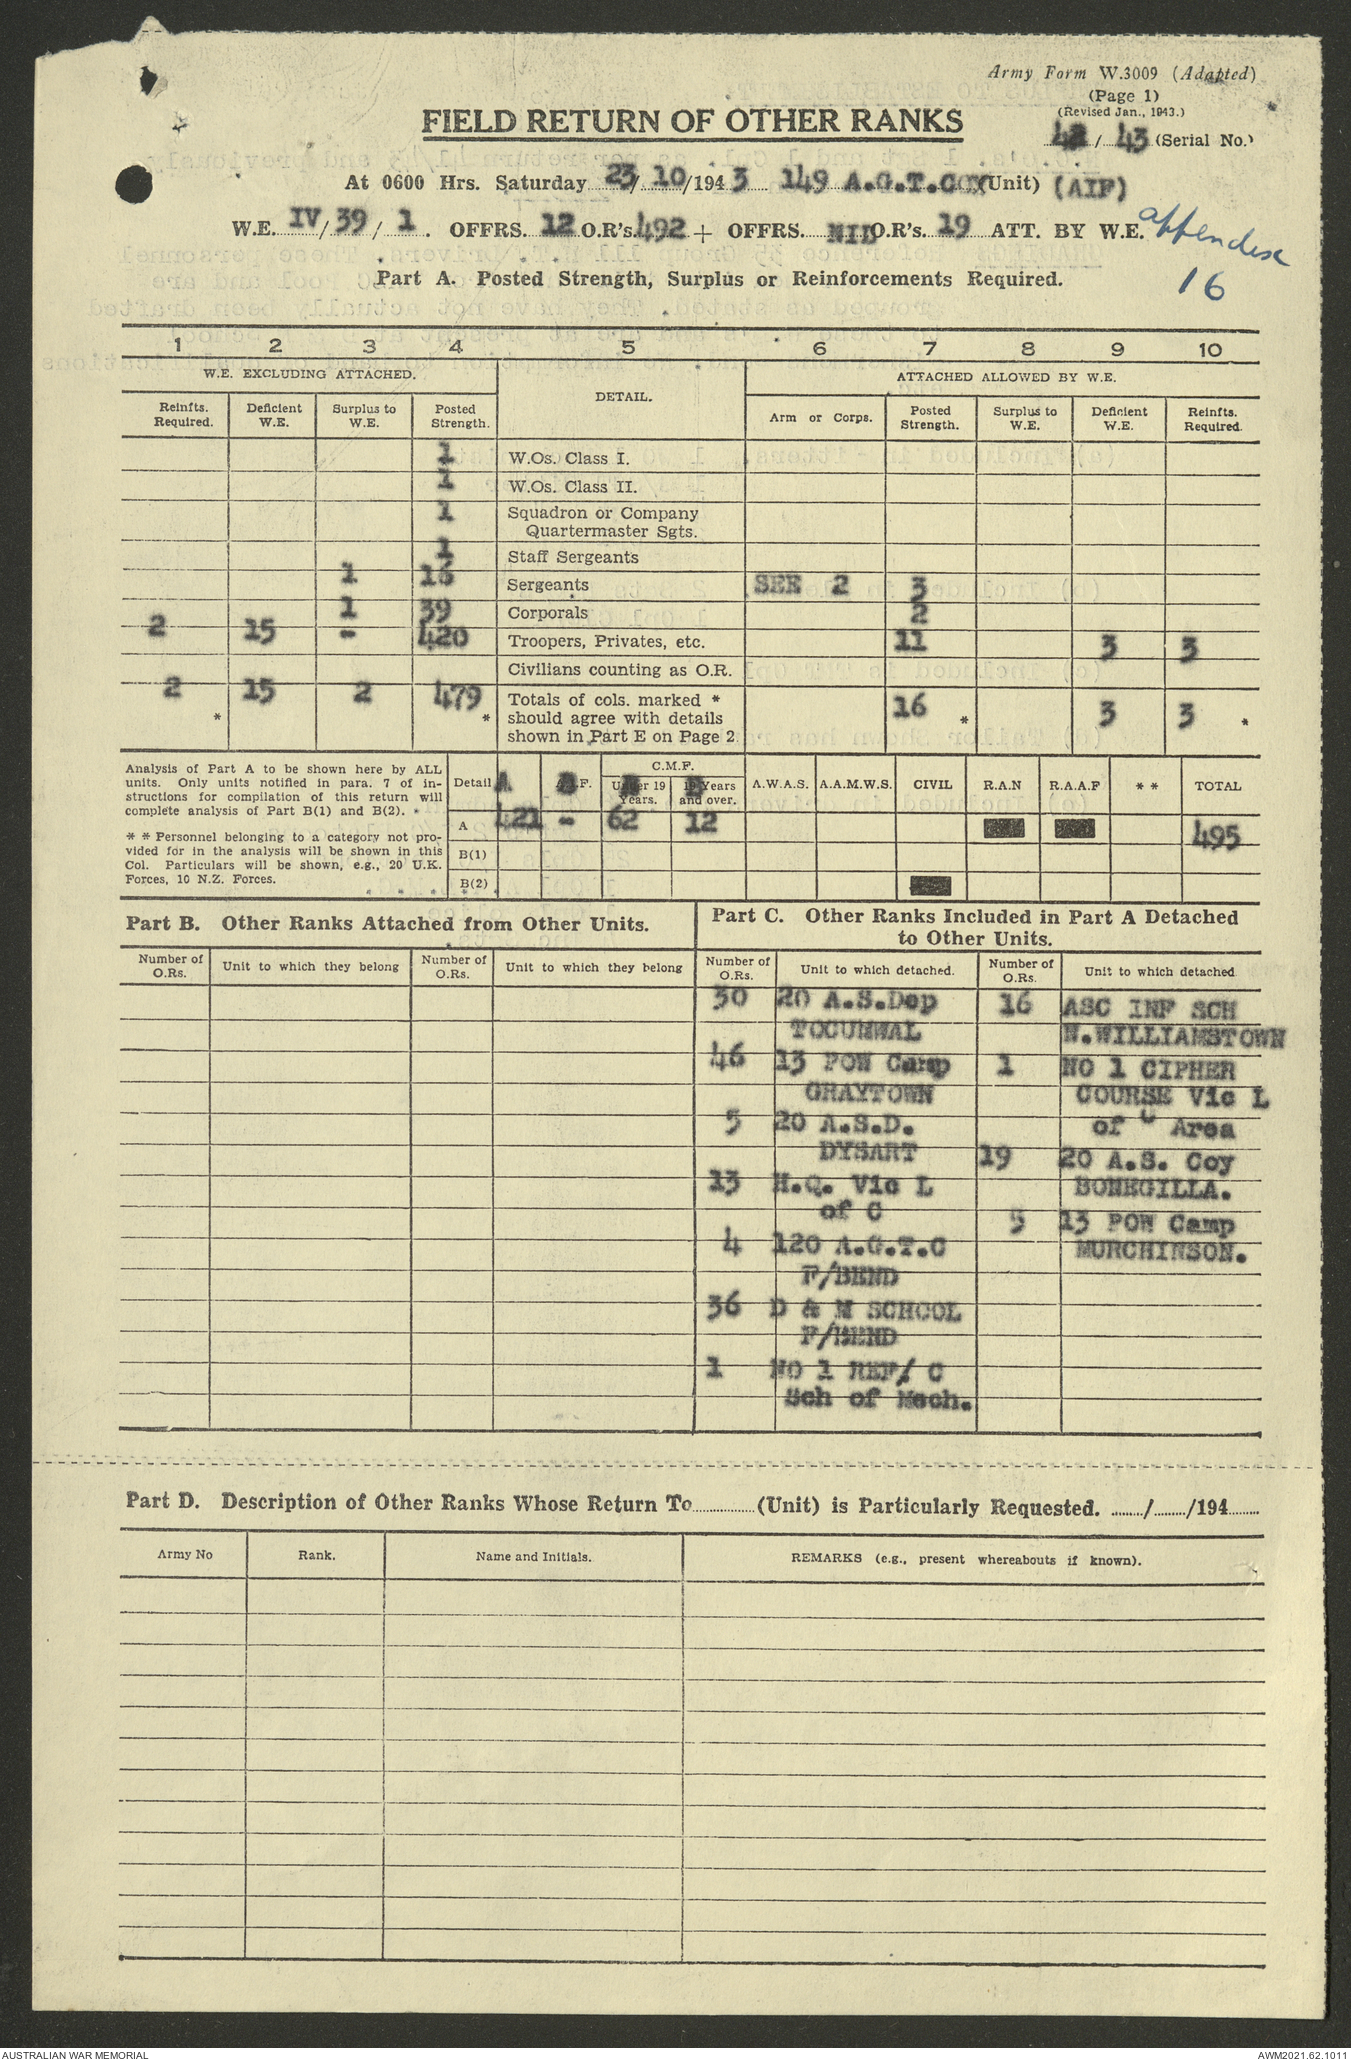 Army Form W.3009 (Adapted)
(Page 1)
(Revised Jan., 1943.)
FIELD RETURN OF OTHER RANKS
/ 43 (Serial No.)
At 0600 Hrs. Saturday 23/10/1943 149 A.G.T.COY (Unit) (AIF)
W.E. IV/39/1. OFFRS. 12 O.R's. 492 + OFFRS. NIL O.R's. 19 ATT. BY W.E.
appendix
16
Part A. Posted Strength, Surplus or Reinforcements Required.
1 2 3 4 5 6 7 8 9 10
W.E. EXCLUDING ATTACHED. DETAIL. ATTACHED ALLOWED BY W.E.
Reinfts. Required. Deficient W.E. Surplus to W.E. Posted Strength. Arm or Corps. Posted Strength. Surplus to W.E. Deficient W.E. Reinfts. Required.
1 W.Os. Class I.
1 W.Os. Class II.
1 Squadron or Company
Quartermaster Sgts.
1 Staff Sergeants
1 16 Sergeants SEE 2 3
1 39 Corporals 2
2 15 - 420 Troopers, Privates, etc. 11 3 3
Civilians counting as O.R.
2 15 2 479 Totals of cols. marked * 16 3 3
* * should agree with details * *
shown in Part E on Page 2.
Analysis of Part A to be shown here by ALL
units. Only units notified in para. 7 of in-
structions for compilation of this return will
complete analysis of Part B(1) and B(2).
* * Personnel belonging to a category not pro-
vided for in the analysis will be shown in this
Col. Particulars will be shown, e.g., 20 U.K.
Forces, 10 N.Z. Forces.
C.M.F.
Detail A A.I.F. Under 19 Years. 19 Years and over. A.W.A.S. A.A.M.W.S. CIVIL R.A.N R.A.A.F * * TOTAL
A 421 - 62 12 495
B(1)
B(2)
Part B. Other Ranks Attached from Other Units.
Number of O.Rs. Unit to which they belong Number of O.Rs. Unit to which they belong
Part C. Other Ranks Included in Part A Detached
to Other Units.
Number of O.Rs. Unit to which detached. Number of O.Rs. Unit to which detached
30 20 A.S.Dep 16 ASC INF SCH
TOCUMWAL N.WILLIAMSTOWN
46 13 POW Camp 1 NO 1 CIPHER
GRAYTOWN COURSE Vic L
5 20 A.S.D. of C Area
DYSART 19 20 A.S. Coy
13 H.Q. Vic L BONEGILLA.
of C 5 13 POW Camp
4 120 A.G.T.C MURCHINSON.
F/BEND
36 D & M SCHOOL
F/BEND
1 NO 1 REF/ C
Sch of Mech.
Part D. Description of Other Ranks Whose Return To............(Unit) is Particularly Requested. ......./......./194.......
Army No Rank. Name and Initials. REMARKS (e.g., present whereabouts if known).
AUSTRALIAN WAR MEMORIAL AWM2021.62.1011